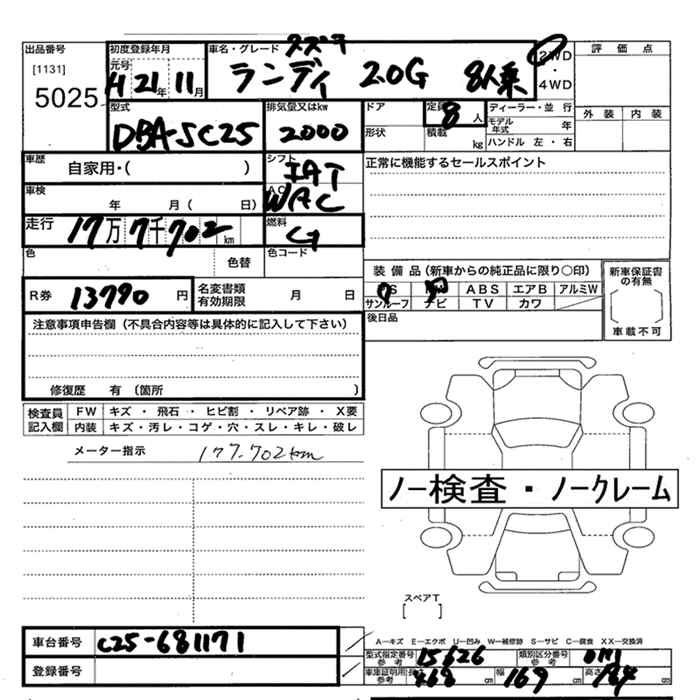 出品番号 初度登録年月 車名・グレード スズキ
[1131] 元号 H 21年 11月 ランディ 20G 8人乗 2WD・4WD 評価点
5025
型式 排気量又はkw ドア 定員 8人 ディーラー・並行 外装 内装
DBA-SC25 2000 形状 積載 kg モデル年式 年
ハンドル 左・右
車歴 自家用・( ) シフト IAT 正常に機能するセールスポイント
車検 年 月( 日) AC WAC
走行 17万7千702km 燃料 G
色 色替 色コード
装備品(新車からの純正品に限り○印) 新車保証書の有無
R券 13790円 名変書類有効期限 月 日 PS PW ABS エアB アルミW
サンルーフ ナビ TV カワ
車載不可
注意事項申告欄(不具合内容等は具体的に記入して下さい) 後日品
修復歴 有(箇所 )
検査員記入欄 FW キズ・飛石・ヒビ割・リペア跡・X要
内装 キズ・汚レ・コゲ・穴・スレ・キレ・破レ
メーター指示 177.702km
ノー検査・ノークレーム
スペアT
[ ]
車台番号 C25-681171
A―キズ E―エクボ U―凹み W―補修跡 S―サビ C―腐食 XX―交換済
型式指定番号 参考 15626 類別区分番号 参考
登録番号 車庫証明用 参考 長さ 468cm 幅 169cm 高さ cm